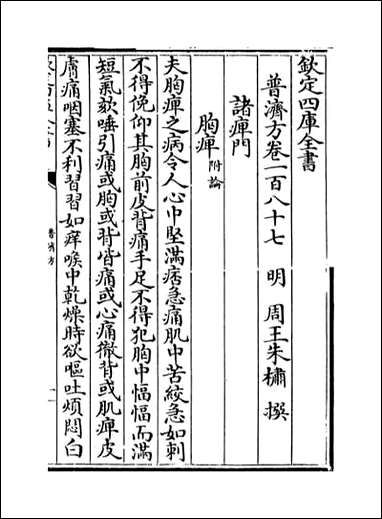 欽定四庫全書
普濟方卷一百八十七　明　周王朱橚　撰
諸痺門
胸痺附論
夫胸痺之病令人心中堅滿痞急痛肌中苦絞急如刺
不得俛仰其胸前皮皆痛手足不得犯胸中愊愊而滿
短氣欬唾引痛或胸或背皆痛或心痛徹背或肌痺皮
膚痛咽塞不利習習如痒喉中乾燥時欲嘔吐煩悶白
普濟方